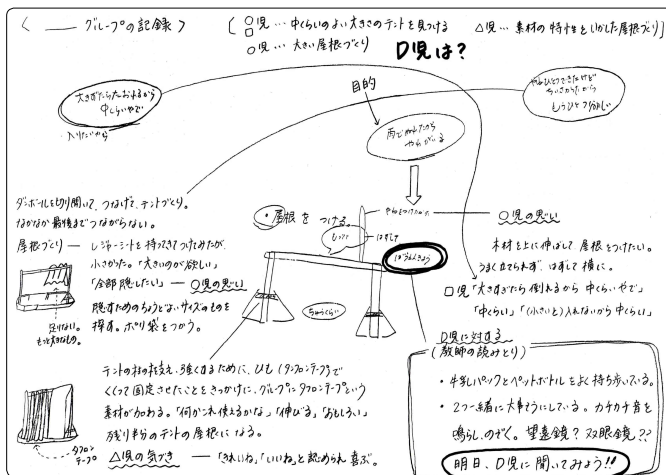 〈 ＿＿＿ グループの記録 〉
〔 □児 … 中くらいのよい大きさのテントを見つける
△児 … 素材の特性をいかした屋根づくり 〕
○児 … 大きい屋根づくり
D児は？
目的
大きすぎたらたおれるから
中くらいやで
入りにくいから
やねひとつできたけど
ちいさかったから
もうひとつ欲しい
雨でぬれたから
ダンボールを切り開いて、つなげて、テントづくり。
なかなか最後までつながらない。
屋根づくり ― レジャーシートを持ってきてつけてみたが、
小さかった。「大きいのが欲しい」
「全部隠したい」― ○児の思い
隠すためのちょうどよいサイズのものを
探す。ポリ袋をつかう。
足りない。
もっと大きなもの。
・屋根を つける。
もって
はずして
ぼうえんきょう
ちゅうくらい
○児の思い
木材を上に伸ばして 屋根をつけたい。
うまく立てられず、はずして 横に。
□児「大きすぎたら倒れるから 中くらいやで」
「中くらい」「(小さいと)入れないから中くらい」
テントの柱の支え、強くするために、ひも(タフロンテープ)で
くくって固定させたことをきっかけに、グループにタフロンテープという
素材が加わる。「何かこれ使えるかな」「伸びる」「おもしろい」
残り半分のテントの屋根になる。
タフロン
テープ
△児の気づき ― 「きれいね」「いいね」と認められ喜ぶ。
D児に対する
(教師の読みとり)
・牛乳パックとペットボトルをよく持ち歩いている。
・2つ一緒に大事そうにしている。カチカチ音を
鳴らし、のぞく。望遠鏡？ 双眼鏡？？
明日、D児に聞いてみよう!!